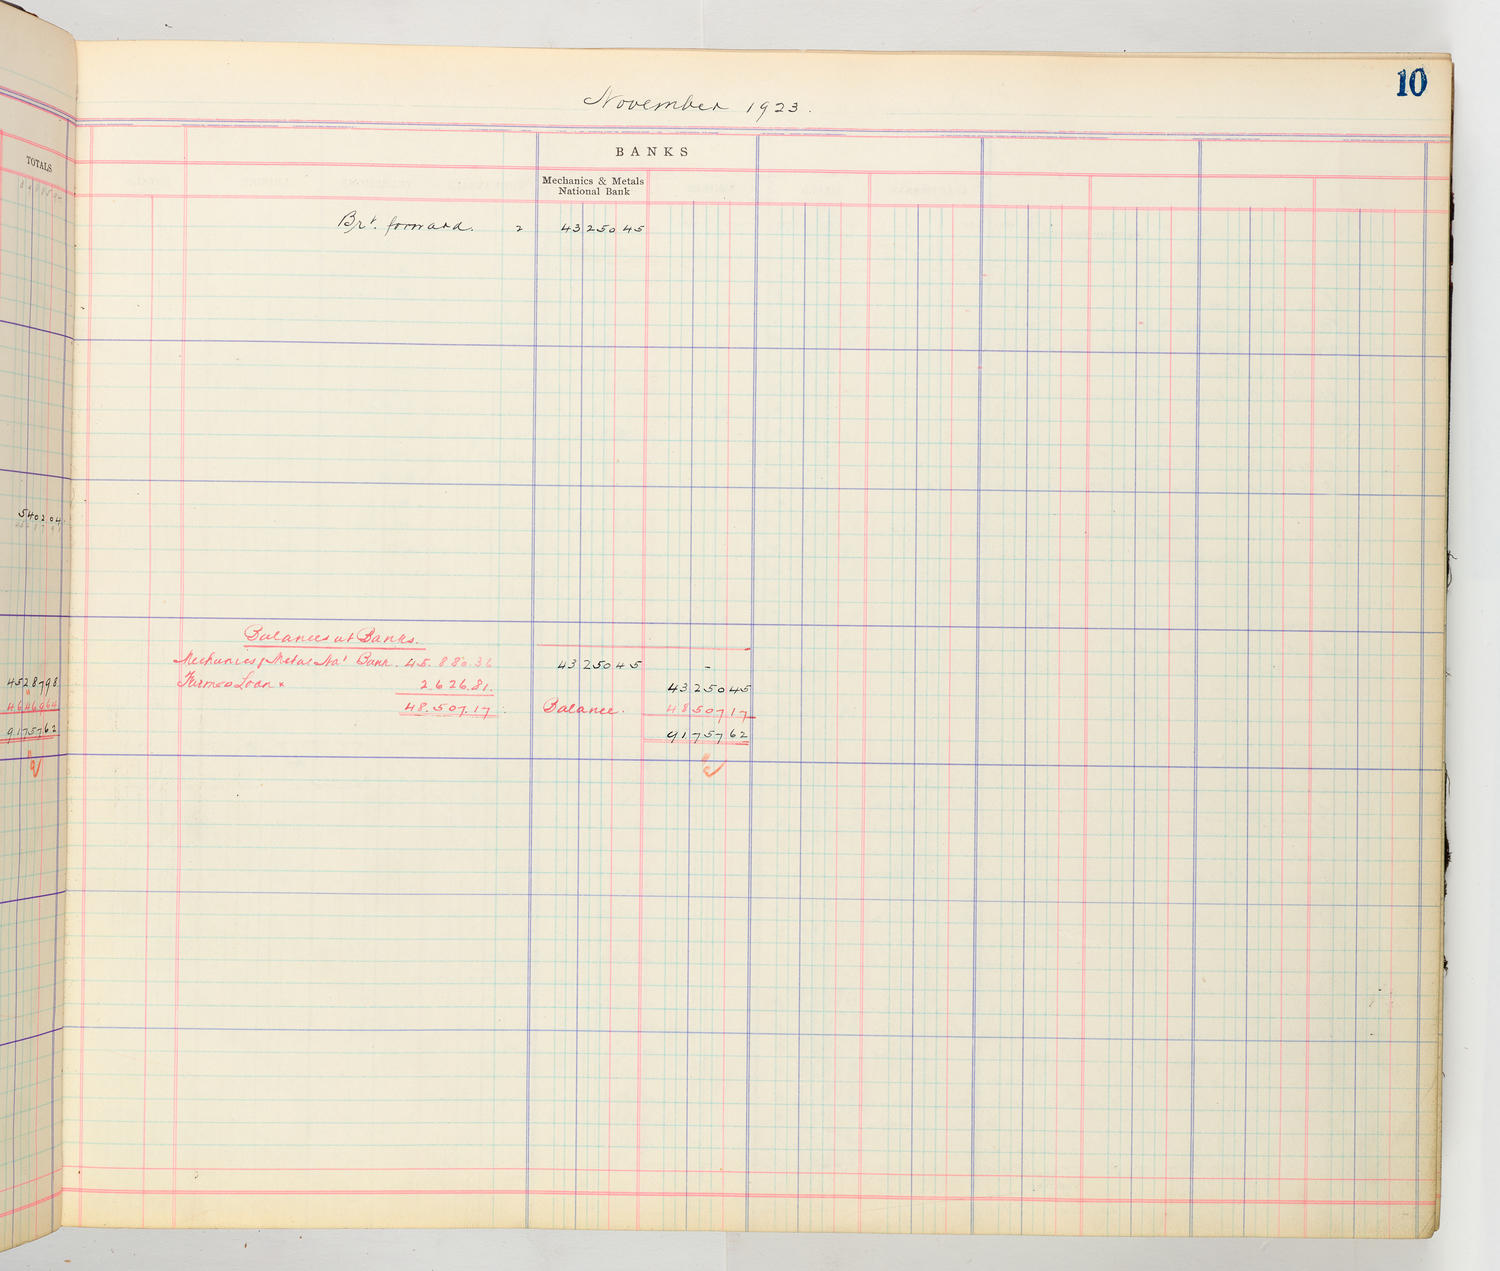 10
November 1923.
TOTALS
BANKS
Mechanics & Metals
National Bank
Brt. forward. 2 43250 45
5402 04
Balances at Banks.
Mechanics & Metal Na' Bank. 45.880.36 43250 45 -
45287 98 Farmers Loan × 2.626.81. 43250 45
46469 64 48.507.17 Balance. 48507 17
91757 62 91757 62